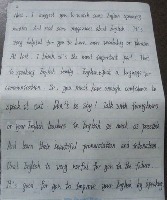 Now, I suggest you to watch some English speaking
movies. And read some magazines about English. It's
very helpful for you to learn more vocabulary or phrases.
At last, I think it's the most important part. Due
to speaking English simply English is a language
communication. So, you must have enough confidence to
speak it out. Don't be shy! Talk with foreigners
or your English teachers in English as much as possible
And learn their beautiful pronunciation and intonation
that English is very useful for you in the future.
It's good for you to improve your English by speaking